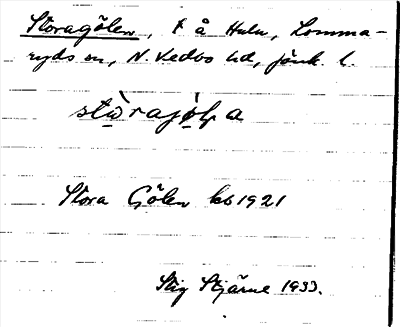 Storagölen, t å Hulu, Lomma-
ryds sn, N. Vedbo hd, Jönk. l.
stωrajöḷa
Stora Gölen kb 1921
Stig Stjärne 1933.